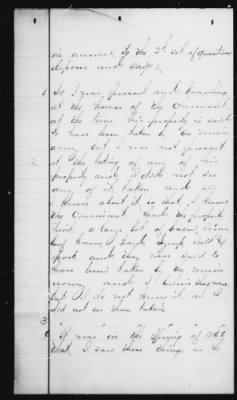 in answer to the 2nd set of questions
deposes and says:
1. I was present and boarding
at the house of the Claimant
at the time his property is said
to have been taken by the union
army but I was not present
2. at the taking of any of his
property and did not see
any of it taken and all
I know about it is that I knew
the Claimant had the property
a large lot of bacon, wine
beef
pork and they were said to
have been taken by the union
army and I believe they were
but I do not know it, as I
did not see them taken
3
"It was" in the Spring of 186
that I saw these things in the